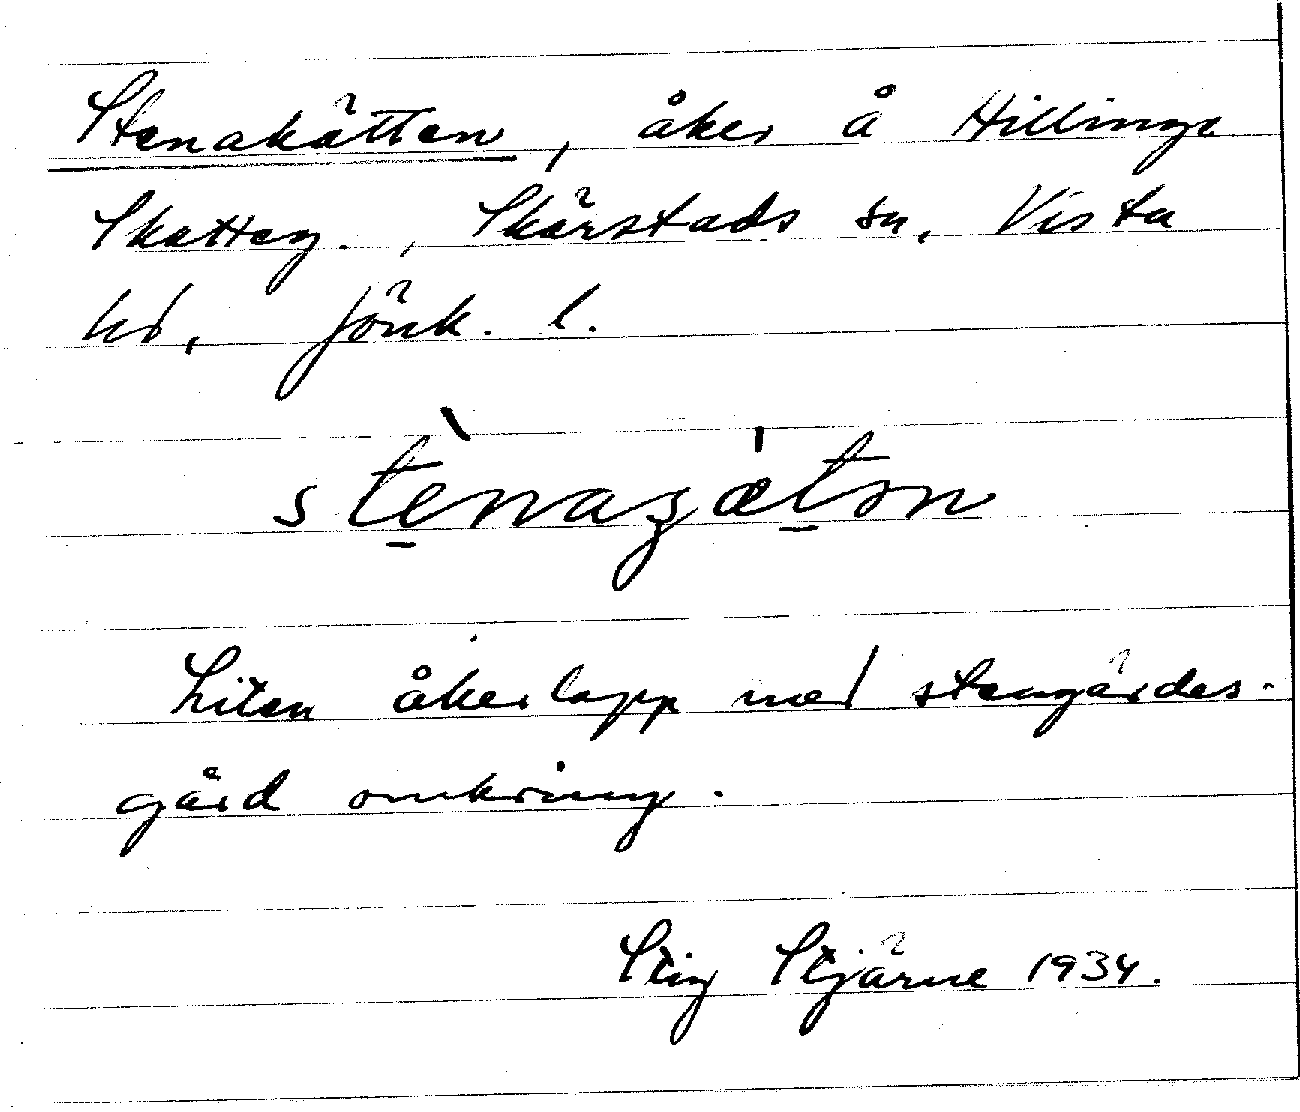 Stenakätten, åker å Hillinge
Skatteg., Skärstads sn, Vista
hd, Jönk. l.
stènagæ̍tən
Liten åkerlapp med stengärdes-
gård omkring.
Stig Stjärne 1934.